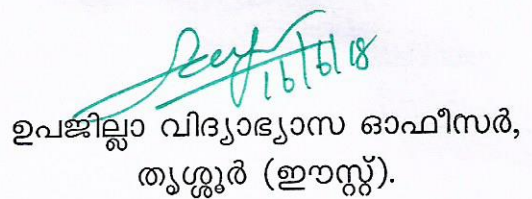 16/6/18
ഉപജില്ലാ വിദ്യാഭ്യാസ ഓഫീസർ,
തൃശ്ശൂർ (ഈസ്റ്റ്).